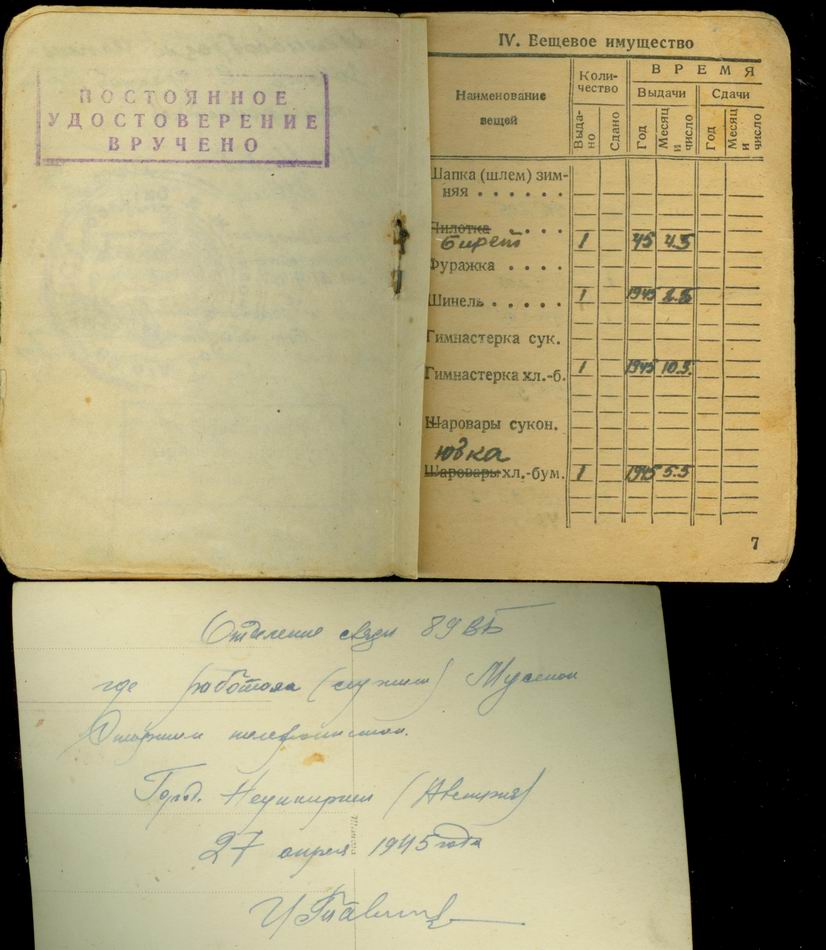 ПОСТОЯННОЕ
УДОСТОВЕРЕНИЕ
ВРУЧЕНО
IV. Вещевое имущество
Наименование вещей
Количество
ВРЕМЯ
Выдачи
Сдачи
Выдано
Сдано
Год
Месяц и число
Год
Месяц и число
Шапка (шлем) зим-
няя . . . . . .
Пилотка . . .
берет 1 45 4.5
Фуражка . . . .
Шинель . . . . . 1 1945 2.5
Гимнастерка сук.
Гимнастерка хл.-б. 1 1945 10.5
Шаровары сукон.
юбка
Шаровары хл.-бум. 1 1945 5.5
7
Отделение связи 89 ВБ
где работала (служила)
Старшим телефонистом.
Город. Неункирхен (Австрия)
27 апреля 1945 года